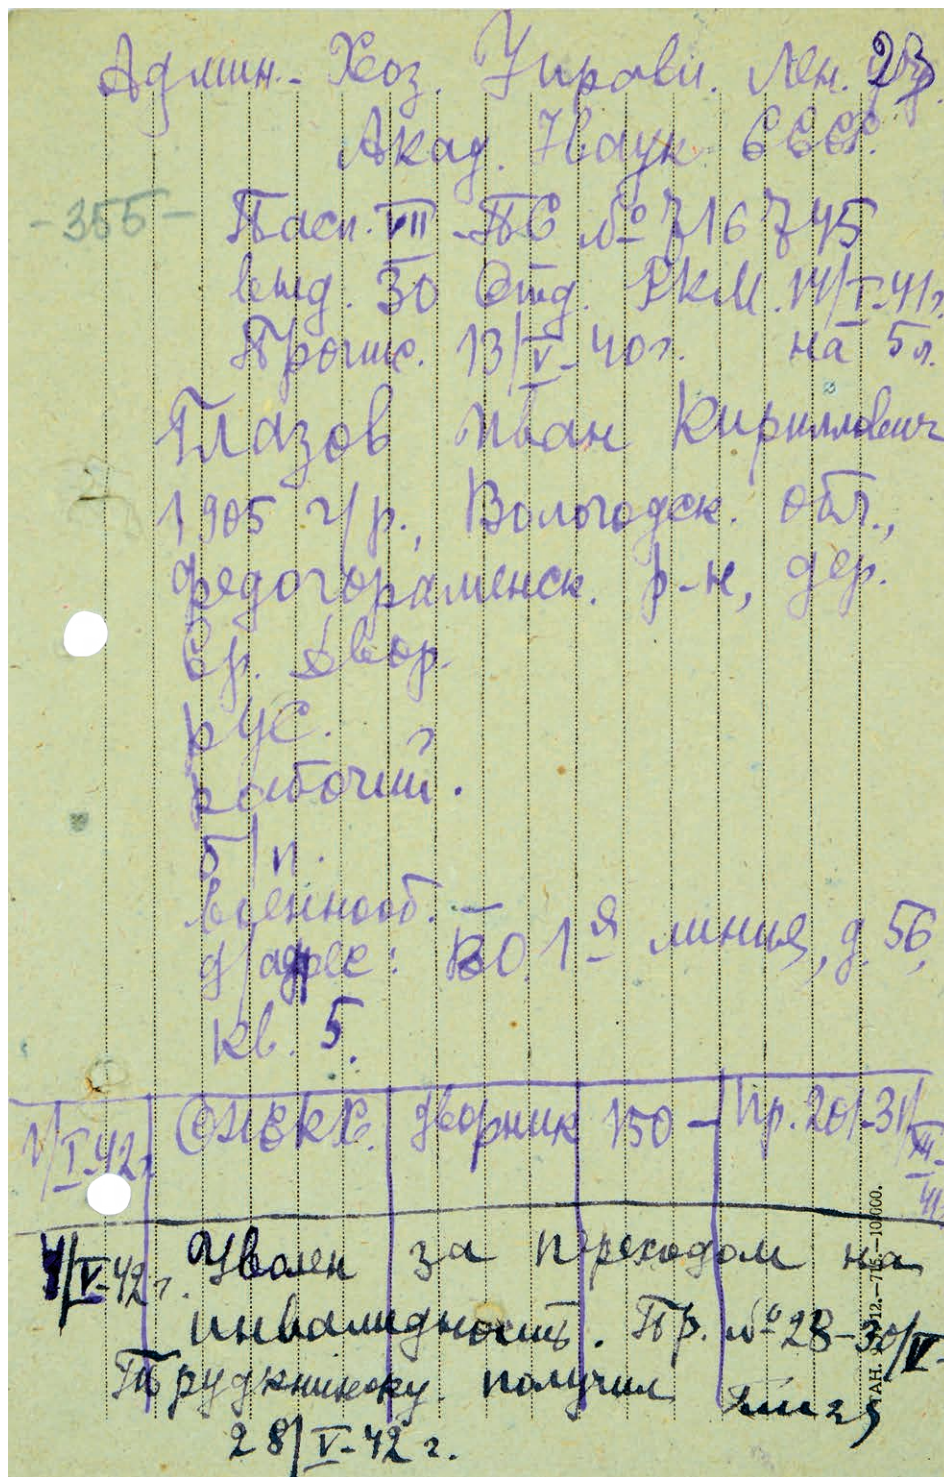 Админ.- Хоз. Управл. Лен. 23
Акад. Наук СССР.
-355-
Пасп. VII-ПС № 716745
выд. 30 Отд. РКМ. 14/I-41г.
Пропис. 13/V-40г. на 5 л.
Глазов Иван Кириллович
1905 г/р., Вологодск. обл.,
Федогораменск. р-н, дер.
Ср. Двор.
рус.
рабочий.
б/п.
военнооб. –
д/адрес: ВО, 1я линия, д. 56,
кв. 5.
1/I-42г. ОНВКХ. дворник 150- Пр. 201-31/XII-41
1/V-42г. Уволен за переходом на
инвалидность. Пр. № 28-30/V-
Трудкнижку получил
28/V-42г.